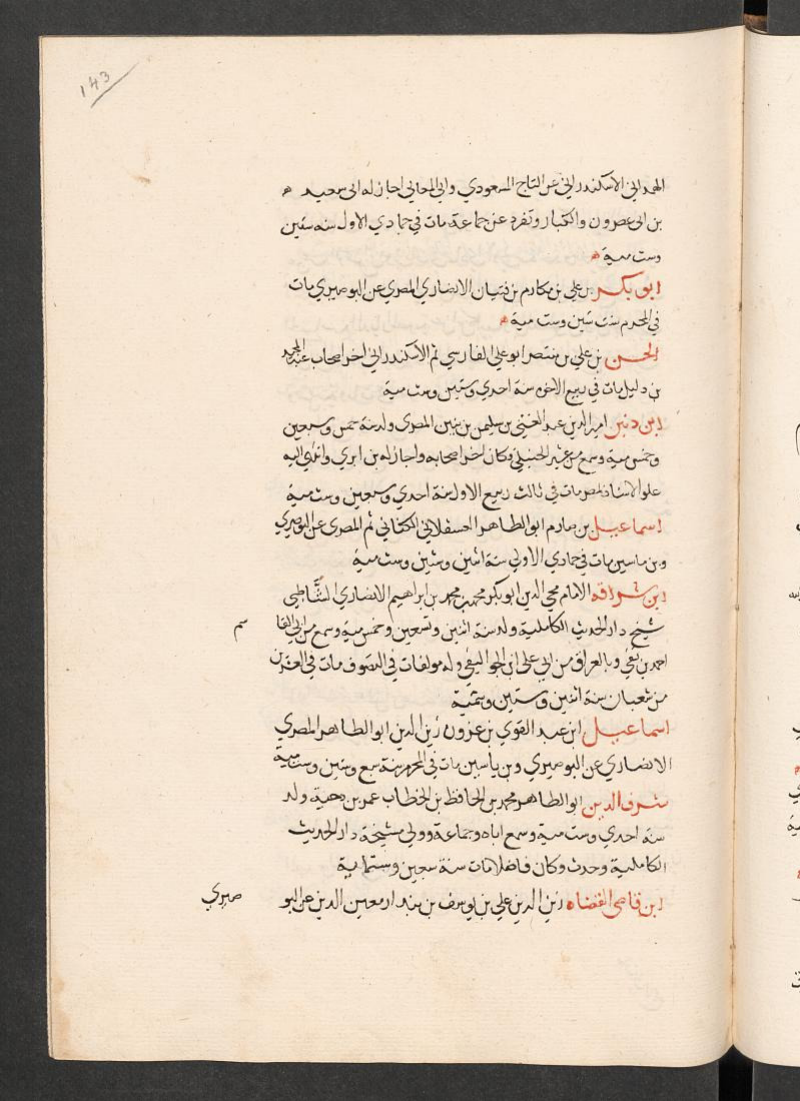 143
الهمداني الاسكندراني عن التاج المسعودي وابي المعاني اجاز له ابي سعيد
بن ابي عصرون والكبار وتفرد عن جماعة مات في جمادي الاول سنة ستين
وست مية
ابو بكر بن علي بن مكارم بن فتيان الانصاري المصري عن البوصيري مات
في المحرم سنة ستين وست مية
الحسن بن علي بن منتصر ابو علي الفارسي ثم الاسكندراني اخر اصحاب عبد المجيد
بن دليل مات في ربيع الاخر سنة احدي وستين وست مية
ابن بنين امير الدين عبد الغني بن سليمن بن بنين المصري ولد سنة خمس وسبعين
وخمس مية وسمع من عشير الحنبلي فكان اخر اصحابه واجاز له بن بري وانتهي اليه
علو الاسناد بمصر مات في ثالث ربيع الاول سنة احدي وسبعين وست مية
اسماعيل بن صارم ابو الطاهر العسقلاني الكناني ثم المصري عن البوصيري
وبن ياسين مات في جمادي الاولي سنة اثنين وستين وست مية
ابن سراقه الامام محي الدين ابو بكر محمد بن محمد بن ابراهيم الانصاري الشاطبي
شيخ دار الحديث الكاملية ولد سنة اثنين وتسعين وخمس مية وسمع من ابي القا سم
احمد بن بقي وبالعراق من ابي علي بن الجواليقي وله مولفات في التصوف مات في العشرين
من شعبان سنة اثنين وستين وستمية
اسماعيل ابن عبد القوي بن عزون زين الدين ابو الطاهر المصري
الانصاري عن البوصيري وبن ياسين مات في المحرم سنة سبع وستين وست مية
شرف الدين ابو الطاهر محمد بن الحافظ بن الخطاب عمر بن دحية ولد
سنة احدي وست مية وسمع اباه وجماعة وولي مشيخة دار الحديث
الكاملية وحدث وكان فاضلا مات سنة سبعين وستماية
ابن قاضي القضاه زين الدين علي بن يوسف بن بندار معين الدين عن البو صيري